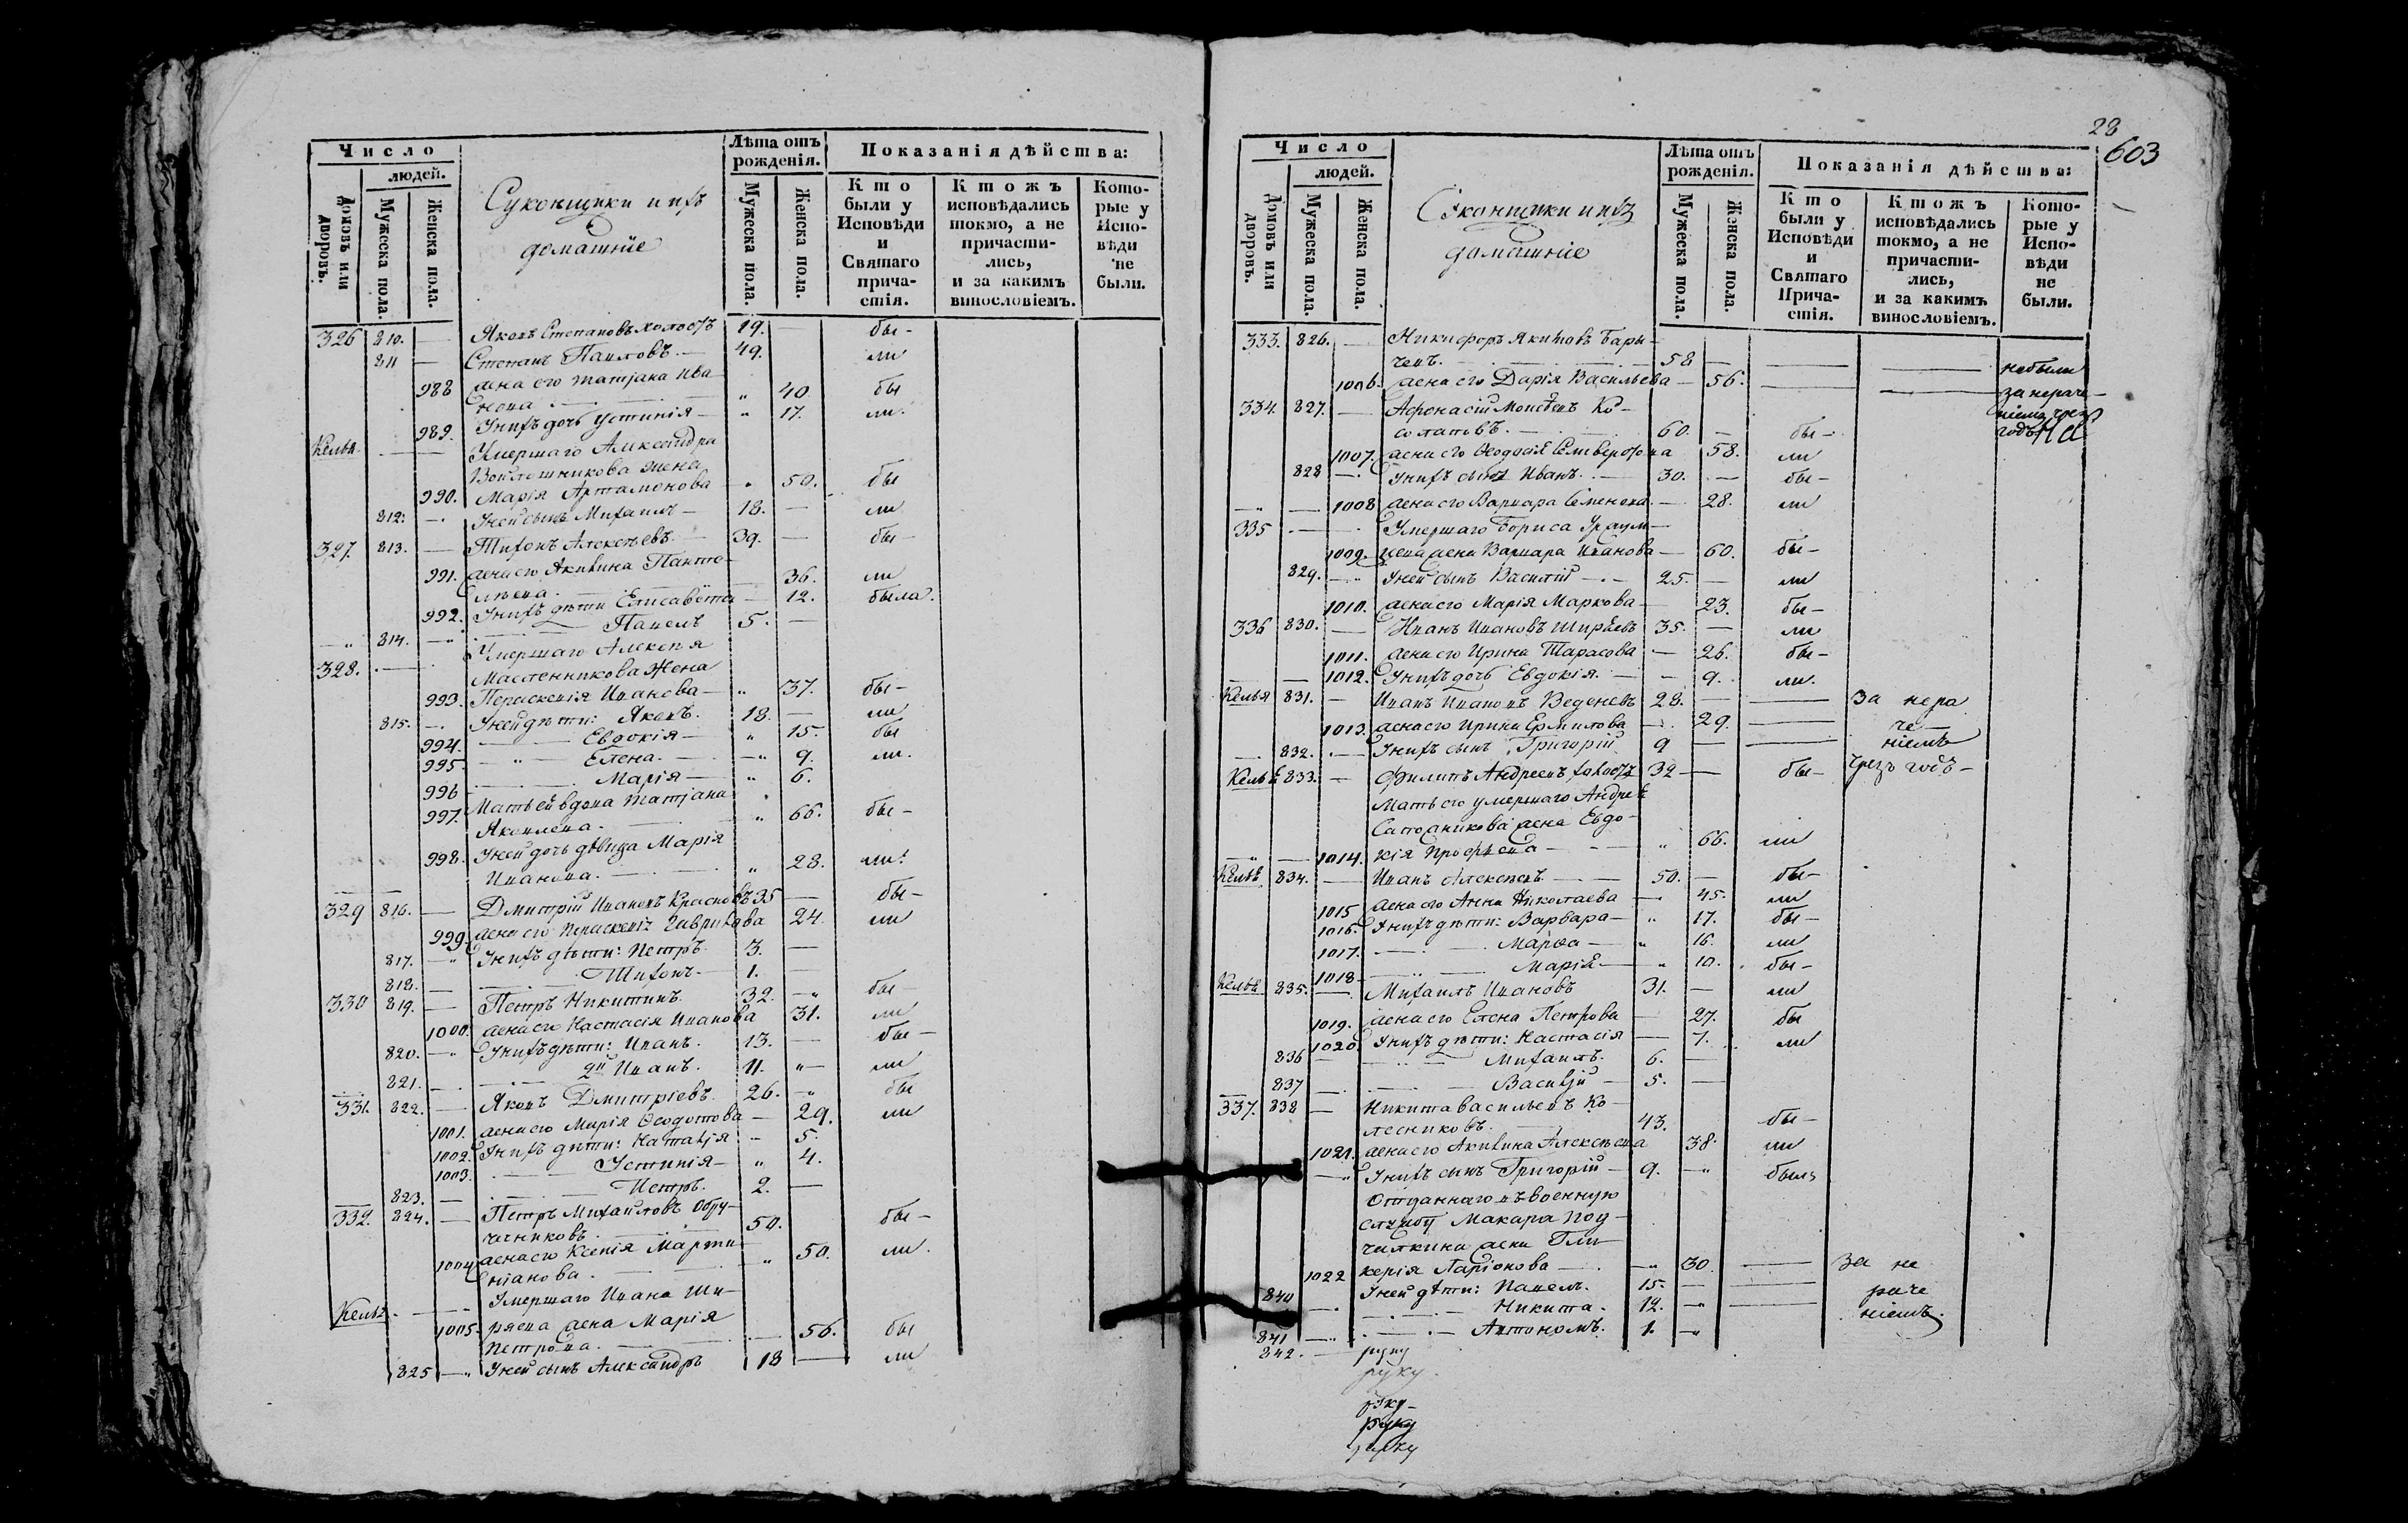 Число
людей.
Домовъ или дворовъ.
Мужеска пола.
Женска пола.
Суконщики и ихъ
домашніе
Лѣта отъ
рожденія.
Мужеска пола.
Женска пола.
Показанія дѣйства:
Кто
были у
Исповѣди
и
Святаго
прича-
стія.
Ктожъ
исповѣдались
токмо, а не
причасти-
лись,
и за какимъ
винословіемъ.
Кото-
рые у
Испо-
вѣди
не
были.
326 810. — Яковъ Степановъ холостъ 19. бы-
811 — Степанъ Павловъ. — 49. ли
988 жена его Татјана Ива-
нова. — " 40 бы
989. У нихъ дочь Устинія — " 17. ли.
Келья. — Умершаго Александра
Войлошникова жена
990. Марія Артамонова " 50. бы
812. — У ней сынъ Михаилъ — 18. — ли
327. 813. — Тихонъ Алексѣевъ. — 39. — бы-
991. жена его Акилина Панте-
лѣева. — 36. ли
992. У нихъ дѣти Елисавета — 12. была.
814. — Павелъ 5. —
328. — Умершаго Алексѣя
Масленникова жена
993. Параскевія Иванова — " 37. бы-
815. — У ней дѣти: Яковъ. 18. — ли
994. — Евдокія — " 15. бы
995. — Елена. — " 9. ли.
996 — Марія — " 6.
997. Мать ей вдова Татјана
Яковлева. — " 66. бы-
998. У ней дочь дѣвица Марія
Иванова. — " 28. ли.
329 816. — Дмитрій Ивановъ Красновъ 35 — бы-
999. жена его Параскевія Гаврилова 24. ли
817. — У нихъ дѣти: Петръ. 3. —
818. — Тихонъ. — 1. —
330 819. — Петръ Никитинъ. 32. — бы-
1000. жена его Настасія Иванова 31. ли
820. — У нихъ дѣти: Иванъ. 13. — бы-
821. — 2й Иванъ. 11. — ли
331. 822. — Яковъ Дмитріевъ. 26. — бы
1001. жена его Марія Ѳеодотова — 29. ли
1002. У нихъ дѣти: Наталія — 5.
1003. — Устинія — " 4.
823. — Петръ. 2. —
332. 824. — Петръ Михаиловъ Обру-
чниковъ. — 50. бы-
1004 жена его Ксенія Марти-
ніанова. — " 50. ли.
Келья. — Умершаго Ивана Ши-
1005. ряева жена Марія
Петрова. — 56. бы
825 — У ней сынъ Александръ 18 — ли
28
603
Число
людей.
Домовъ или дворовъ.
Мужеска пола.
Женска пола.
Суконщики и ихъ
домашніе
Лѣта отъ
рожденія.
Мужеска пола.
Женска пола.
Показанія дѣйства:
Кто
были у
Исповѣди
и
Святаго
Прича-
стія.
Ктожъ
исповѣдались
токмо, а не
причасти-
лись,
и за какимъ
винословіемъ.
Кото-
рые у
Испо-
вѣди
не
были.
333. 826. — Никифоръ Якимовъ Бары-
чевъ. — 58 — небыли
1006. жена его Дарія Васильева — 56. — за нераче-
334. 827. — Афонасій Моисѣевъ Ко- ніемъ чрезъ
солаповъ. — 60. — бы- годъ
1007. жена его Ѳеодосія Селиверстова 58. ли
828 — У нихъ сынъ Иванъ. — 30. — бы-
1008 жена его Варвара Семенова. — 28. ли
335 — Умершаго Бориса
1009. жена Варвара Иванова — 60. бы-
829. — У ней сынъ Василій — 25. — ли
1010. жена его Марія Маркова — 23. бы-
336 830. — Иванъ Ивановъ Ширяевъ 35. — ли
1011. жена его Ирина Тарасова — 26. бы-
1012. У нихъ дочь Евдокія. — 9. ли.
Келья 831. — Иванъ Ивановъ Веденевъ 28. — За нера
1013. жена его Ирина Ермилова — 29. — че-
832. — У нихъ сынъ Григорій 9 — ніемъ
Келья 833. — Филипъ Андреевъ холостъ 32 — бы- чрезъ годъ-
Мать его умершаго Андрея
Сапожникова жена Евдо-
1014. кія Профѣева — " 66. ли
Келья 834. — Иванъ Алексѣевъ. — 50. — бы-
1015 жена его Анна Николаева — 45. ли
1016. У нихъ дѣти: Варвара — " 17. бы-
1017. — Марѳа — " 16. ли
1018 — Марія — " 10. бы-
Келья 835. — Михаилъ Ивановъ 31. — ли
1019. жена его Елена Петрова — 27. бы
1020 У нихъ дѣти: Настасія — 7. ли
836 — Михаилъ. 6. —
837 — Василій — 5. —
337. 838 — Никита Васильевъ Ко-
лесниковъ. — 43. бы-
1021. жена его Акилина Алексѣева 38. ли
— У нихъ сынъ Григорій — 9. — былъ
Отданнаго въ военную
службу Макара Под-
чалкина жена Гли-
1022 керія Ларіонова — 30. — За не
840 У ней дѣти: Павелъ. 15. — раче
— Никита. 12. — ніемъ.
841 — Автономъ. 1. —
842. — руку
руку.
руку-
руку
руку